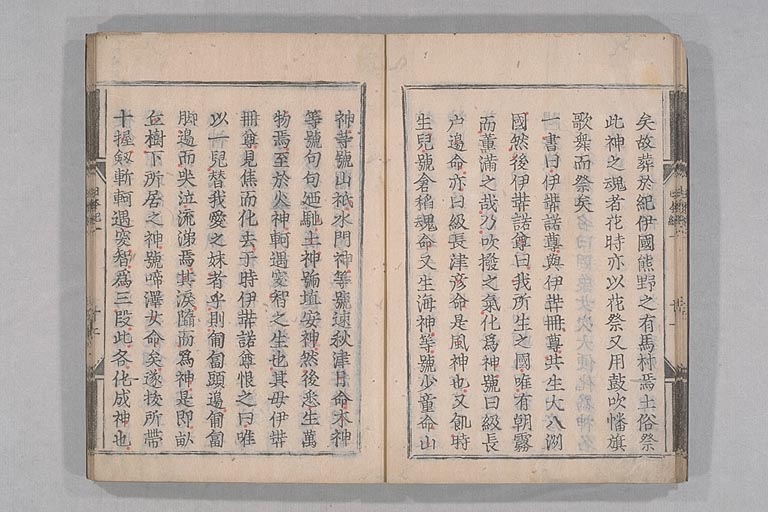 矣故葬於紀伊國熊野之有馬村焉土俗祭
此神之魂者花時亦以花祭又用鼓吹幡旗
歌舞而祭矣
一書曰伊弉諾尊與伊弉冊尊共生大八洲
國然後伊弉諾尊曰我所生之國唯有朝霧
而薫滿之哉乃吹撥之氣化爲神號曰級長
戸邊命亦曰級長津彦命是風神也又飢時
生兒號倉稲魂命又生海神等號少童命山
神等號山祇水門神等號速秋津日命木神
等號句句廼馳土神號埴安神然後悉生萬
物焉至於火神軻遇突智之生也其母伊弉
冊尊見焦而化去于時伊弉諾尊恨之曰唯
以一兒替我愛之妹者乎則匍匐頭邊匍匐
脚邊而哭泣流涕焉其淚墮而爲神是即畝
丘樹下所居之神號啼澤女命矣遂拔所帶
十握釼斬軻遇突智爲三段此各化成神也